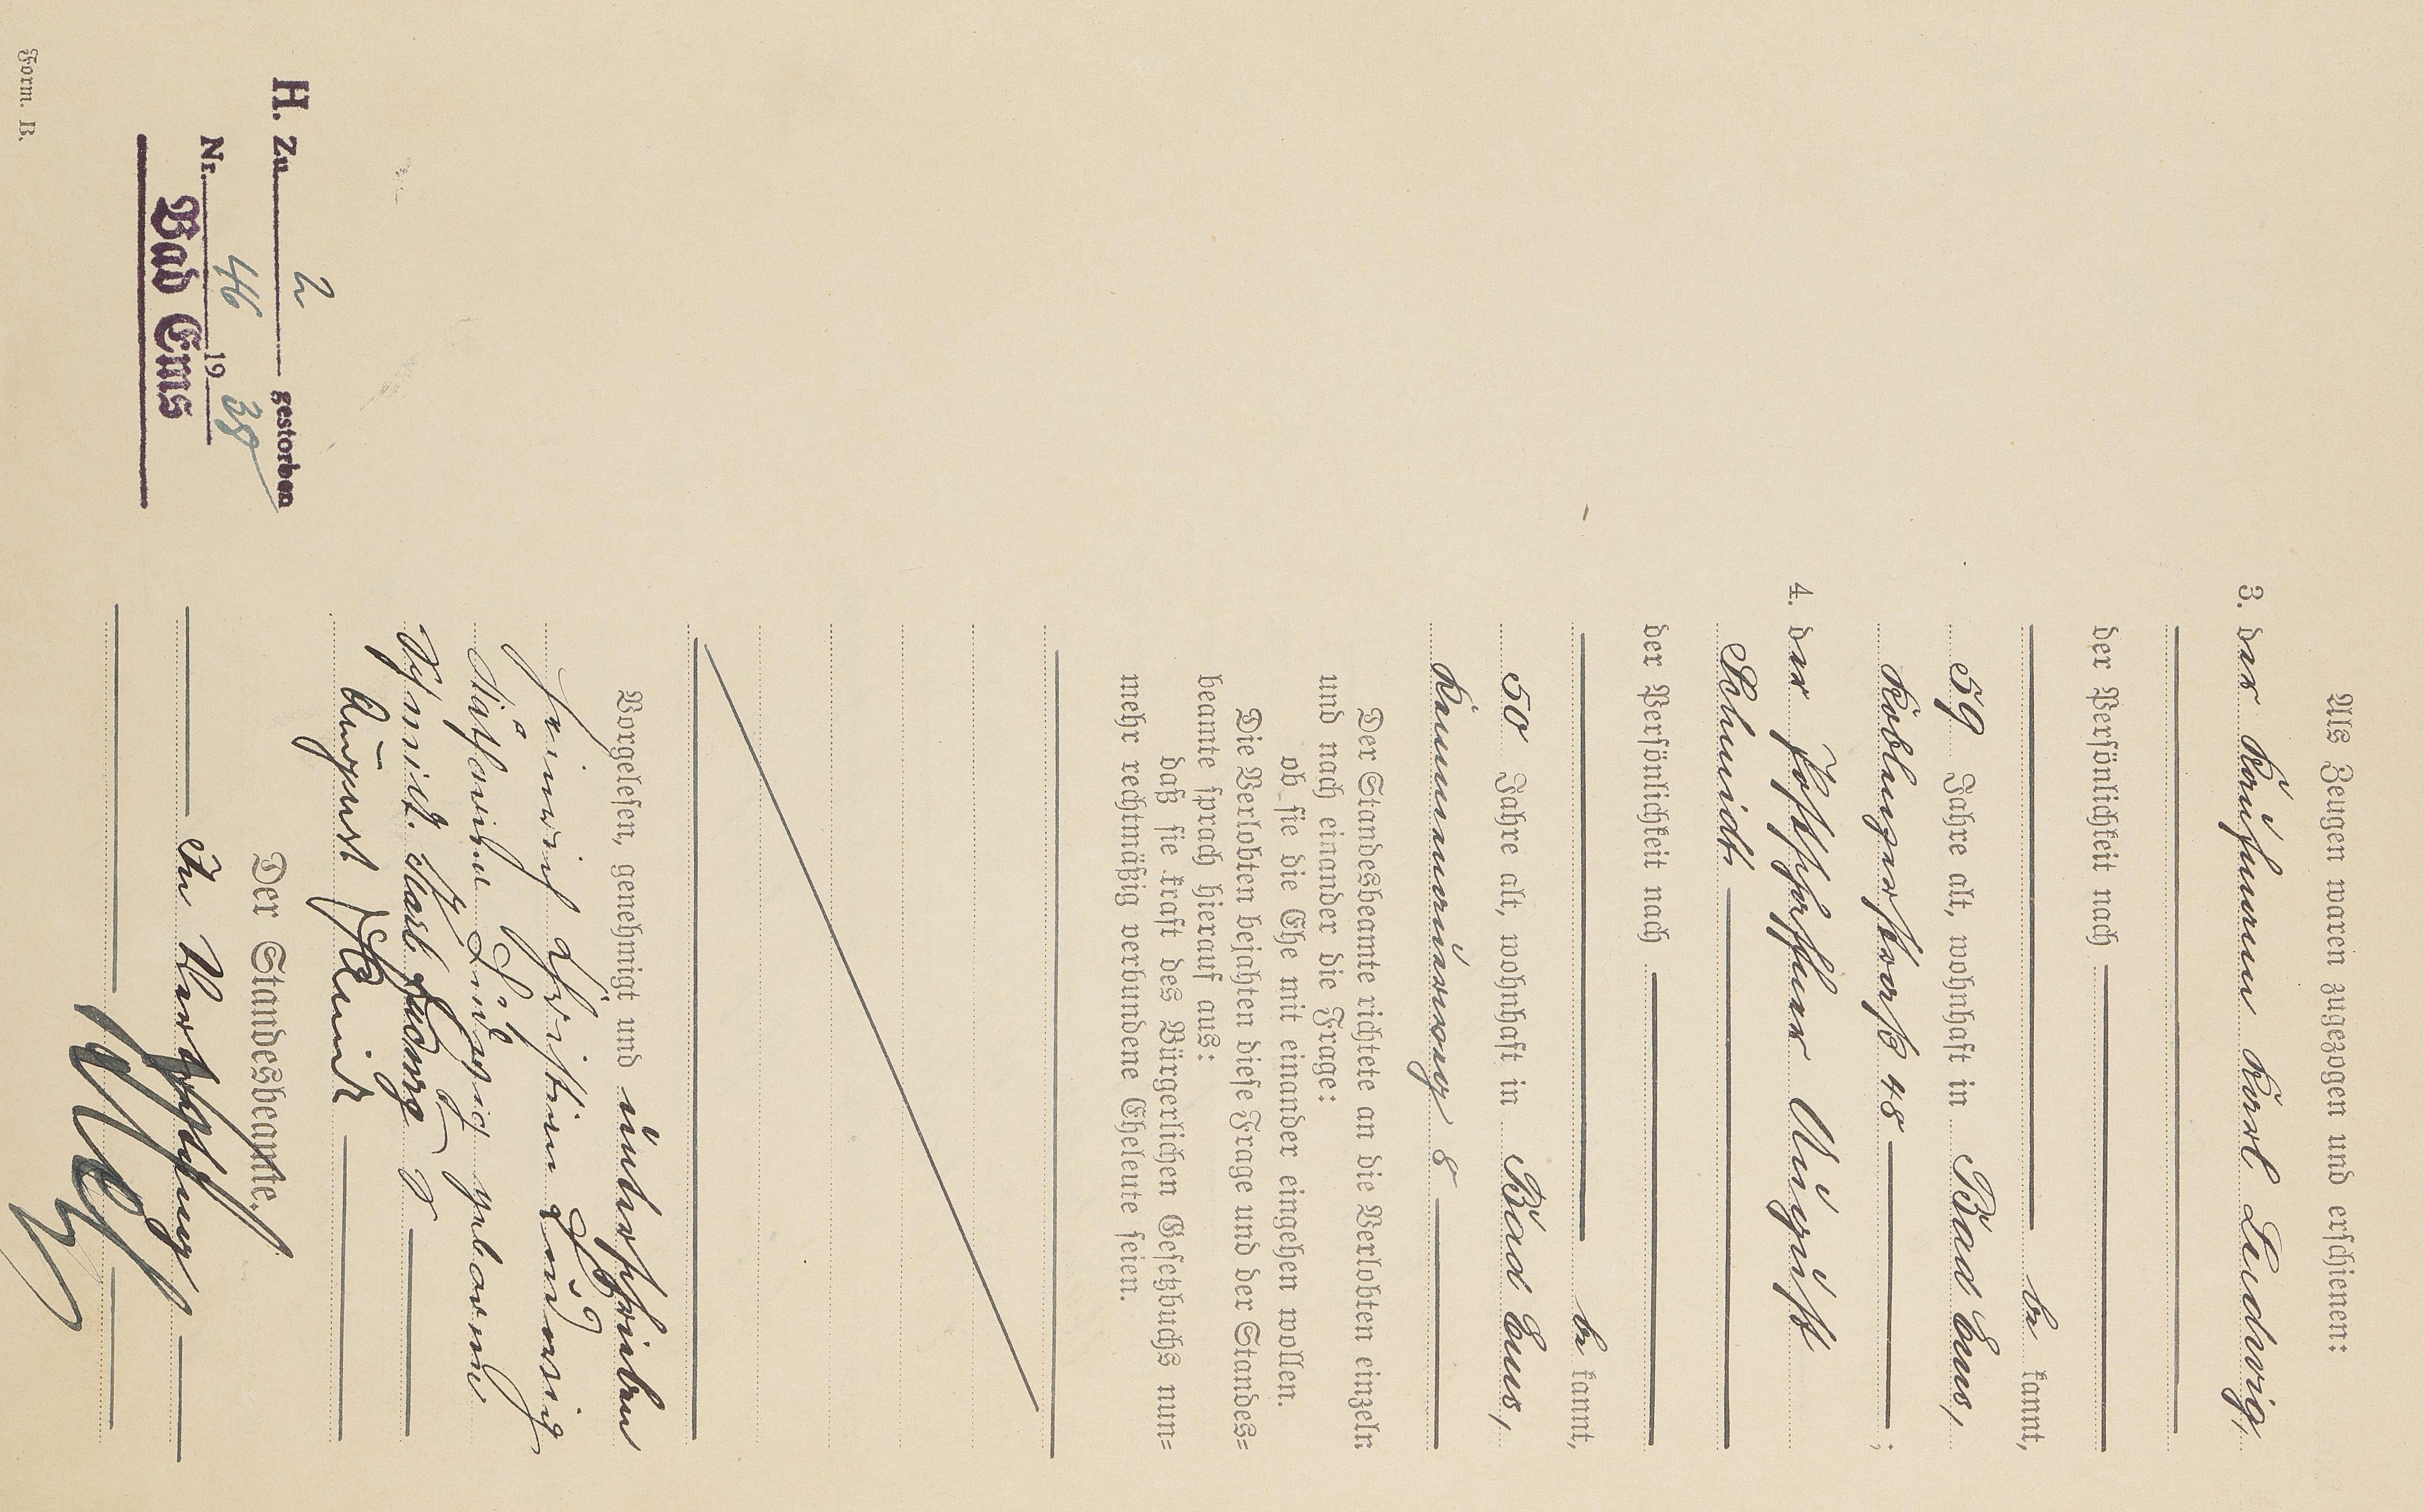 Als Zeugen waren zugezogen und erschienen:
3. der Kaufmann Karl Ludwig,
der Persönlichkeit nach
be kannt,
59 Jahre alt, wohnhaft in Bad Ems,
Koblenzerstraße 48 ;
4. der Postschaffner August
Schmidt
der Persönlichkeit nach
be kannt,
50 Jahre alt, wohnhaft in Bad Ems,
8
Der Standesbeamte richtete an die Verlobten einzeln
und nach einander die Frage:
ob sie die Ehe mit einander eingehen wollen.
Die Verlobten bejahten diese Frage und der Standes=
beamte sprach hierauf aus:
daß sie kraft des Bürgerlichen Gesetzbuchs nun=
mehr rechtmäßig verbundene Eheleute seien.
Vorgelesen, genehmigt und unterschrieben
Heinrich Christian
Katharina geborene
Schmidt. Karl Ludwig
August Schmidt
Der Standesbeamte.
In Vertretung
H. Zu 2 gestorben
Nr. 46 1938
Bad Ems
Form. B.